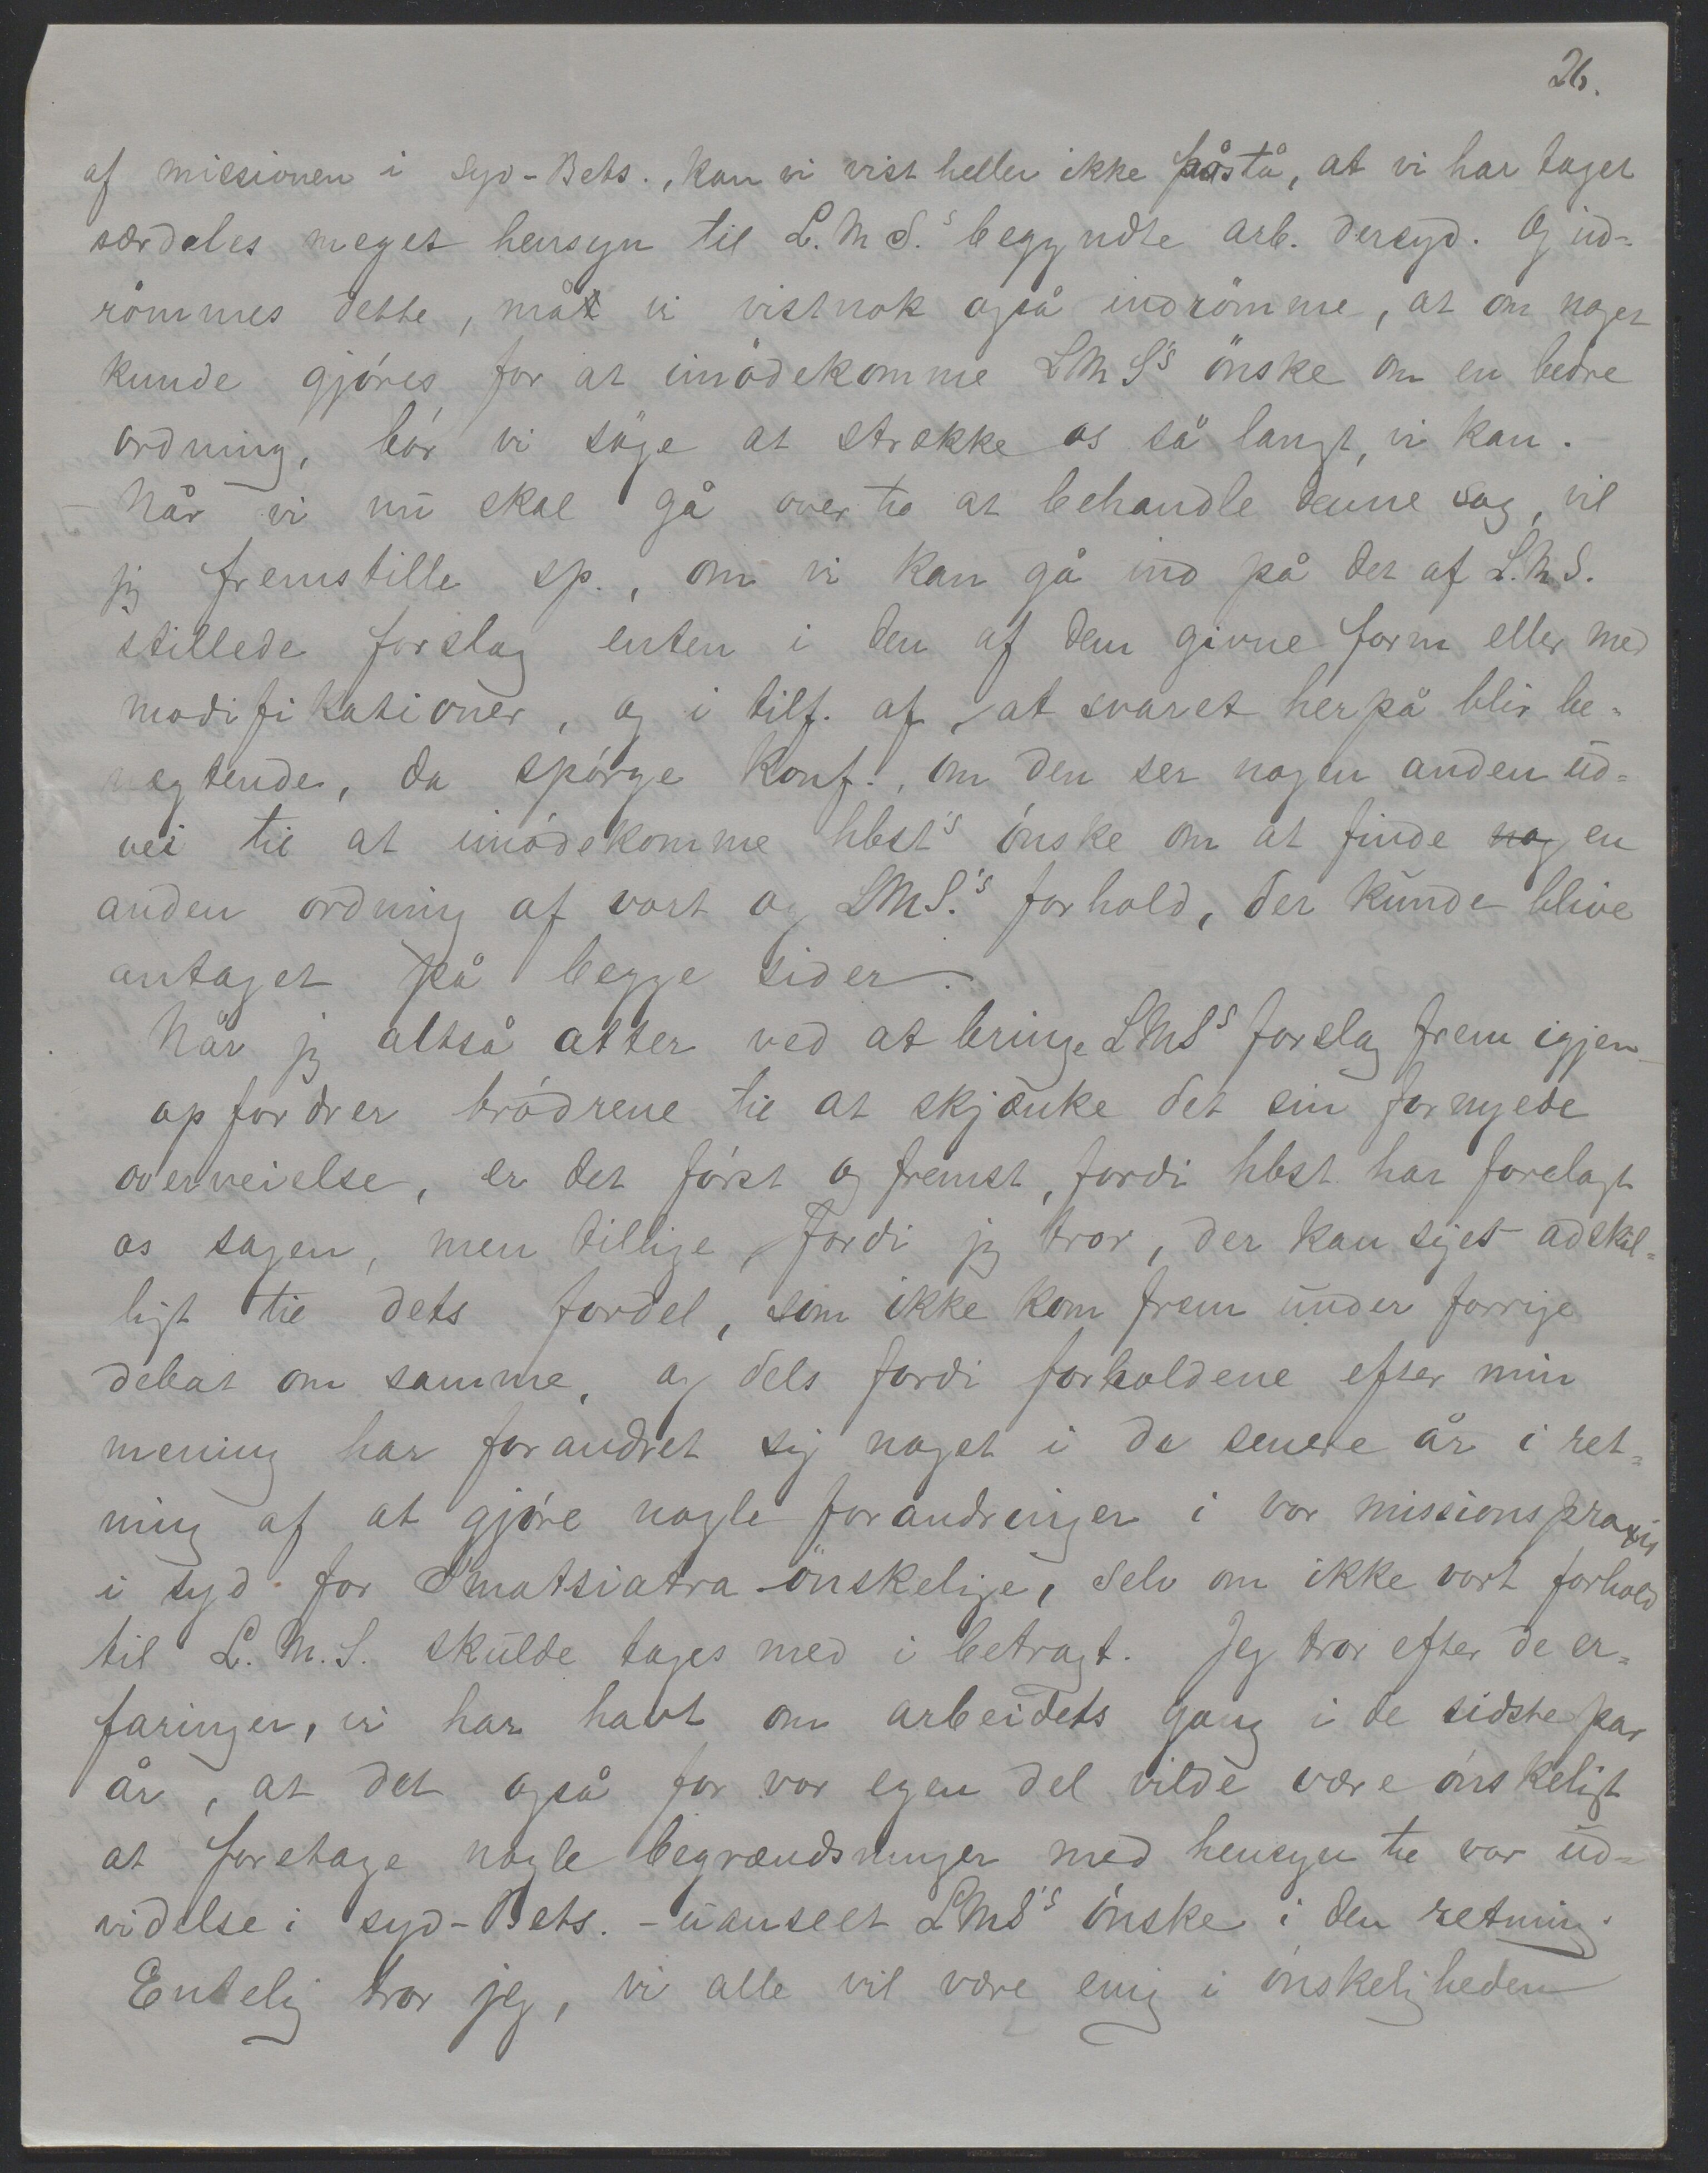 26.
af missionen i Syd-Bets., kan vi vist heller ikke påstå, at vi har taget
særdeles meget hensyn til L.M.S.'s begyndte arb. dersyd. Og ind-
römmes dette, må vi vistnok også indrömme, at om noget
kunde gjöres for at imödekomme LMS's önske om en bedre
ordning, bör vi söge at strække os så langt, vi kan.
Når vi nu skal gå over til at behandle denne sag, vil
jeg fremstille sp., om vi kan gå ind på det af L.M.S.
stillede forslag enten i den af dem givne form eller med
modifikationer, og i tilf. af, at svaret herpå blir be-
nægtende, da spörge konf., om den ser nogen anden ud-
vei til at imödekomme hbst's önske om at finde nog en
anden ordning af vort og LMS.'s forhold, der kunde blive
antaget på begge sider.
Når jeg altså atter ved at bringe LMS's forslag frem igjen
opfordrer brödrene til at skjænke det sin fornyede
overveielse, er det först og fremst, fordi hbst har forelagt
os sagen, men tillige, fordi jeg tror, der kan siges adskil-
ligt til dets fordel, som ikke kom frem under forrige
debat om samme, og dels fordi forholdene efter min
mening har forandret sig noget i de senere år i ret-
ning af at gjöre nogle forandringer i vor missionspraxis
i syd for Matsiatra önskelige, selv om ikke vort forhold
til L.M.S. skulde tages med i betragt. Jeg tror efter de er-
faringer, vi har havt om arbeidets gang i de sidste par
år, at det også for vor egen del vilde være önskeligt
at foretage nogle begrændsninger med hensyn til vor ud-
videlse i syd-Bets. - uanseet LMS's önske i den retning.
Entelig tror jeg, vi alle vil være enig i önskeligheden